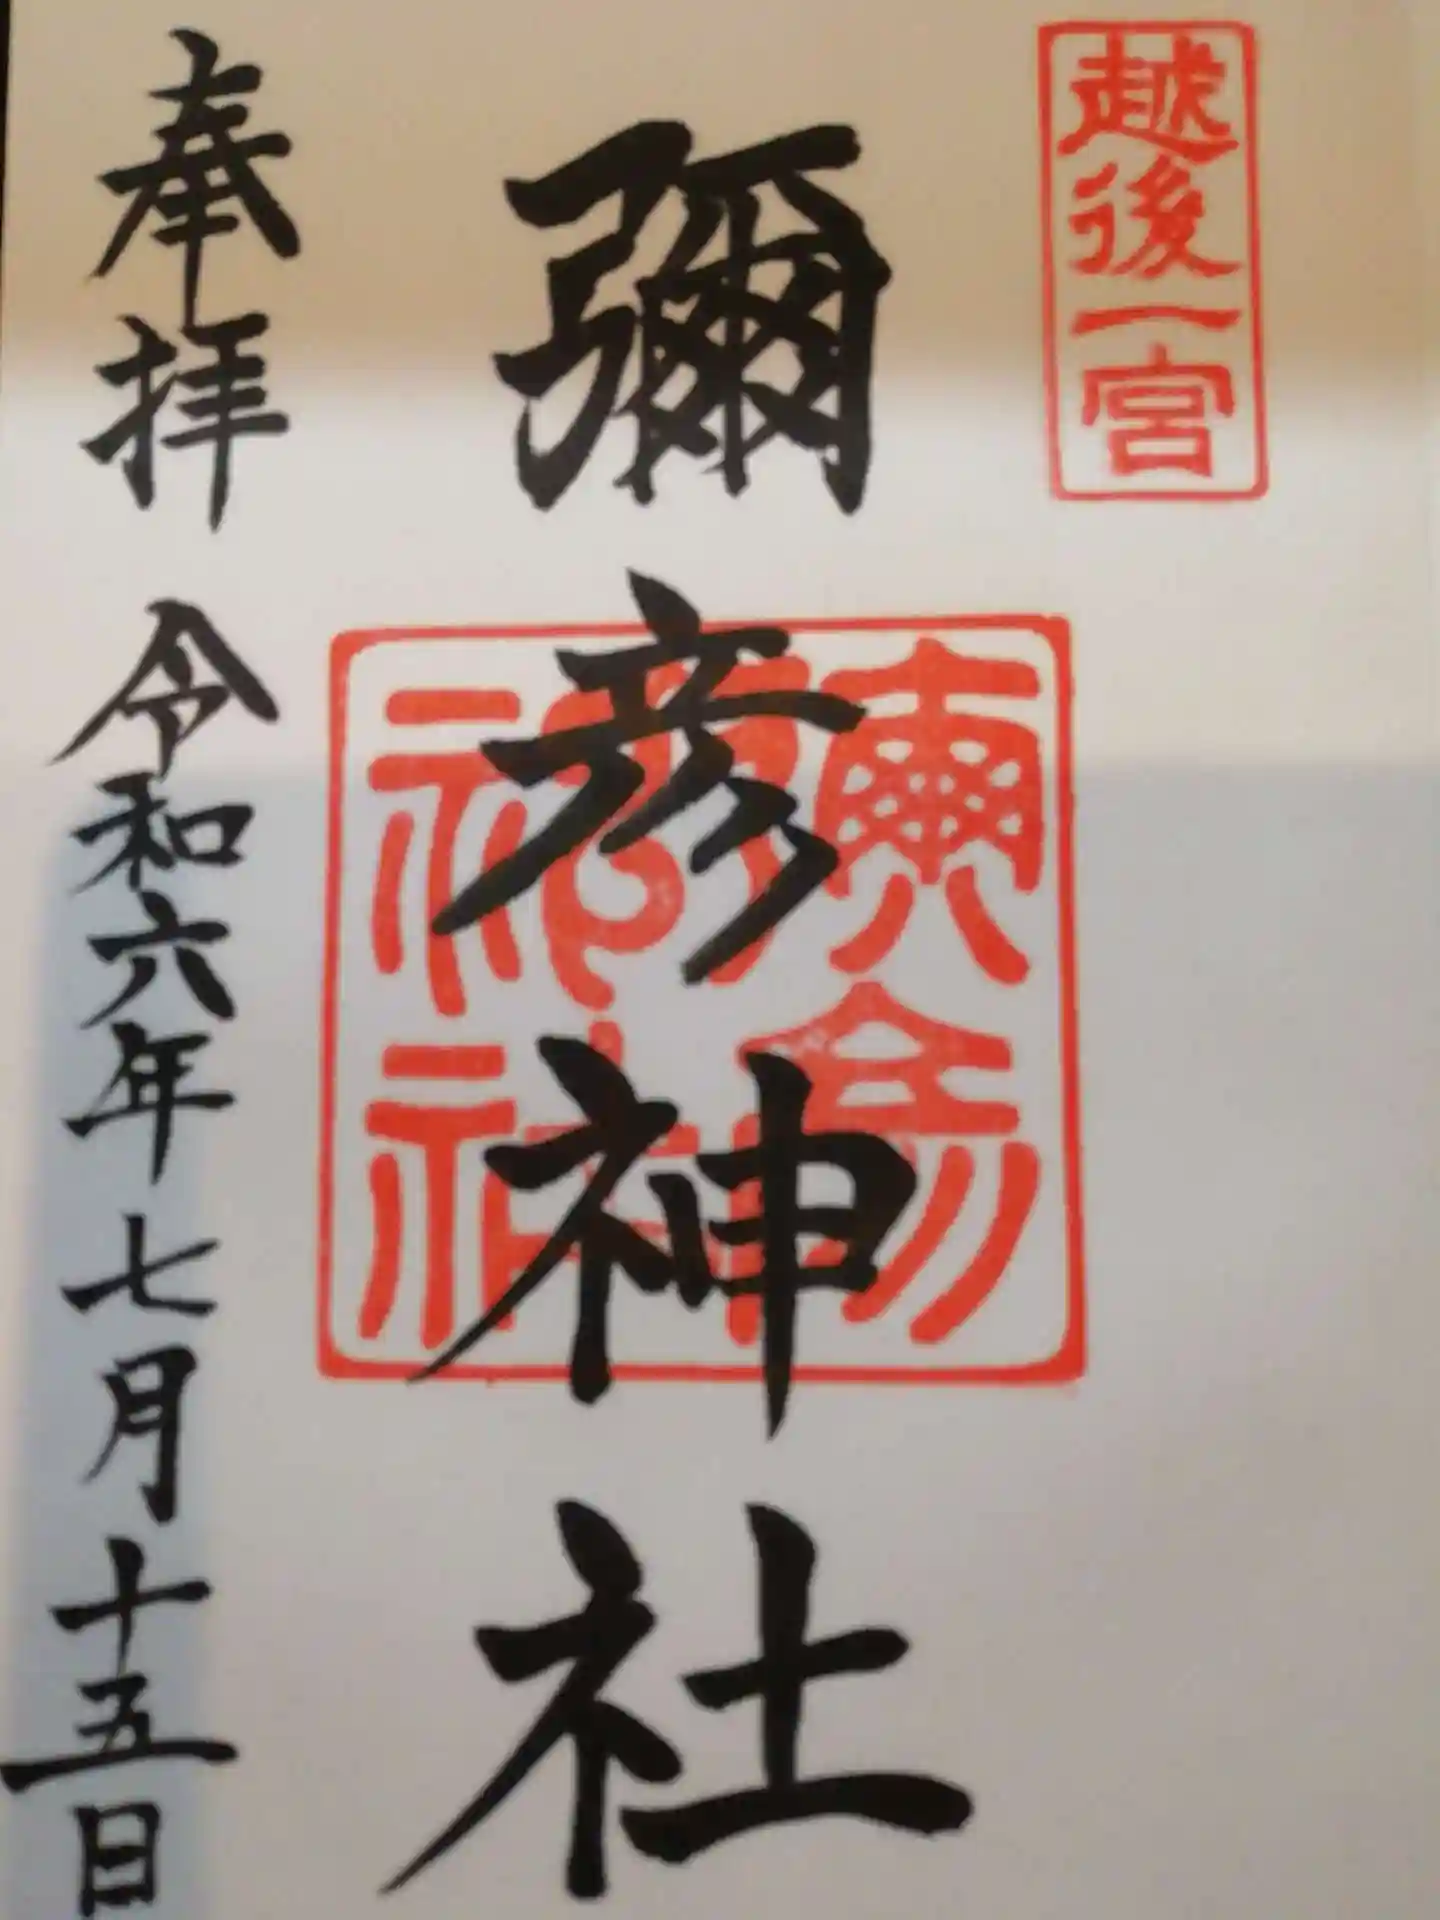 越後一宮
彌彦神社
奉拝 令和六年七月十五日